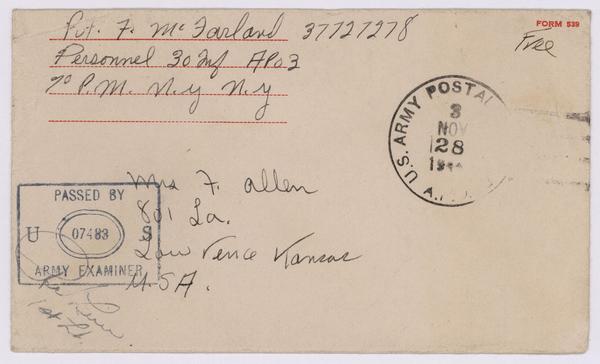 Pvt. F. McFarland 37727278
Personnel 30 Inf APO 3
% P.M. N.Y N.Y
FORM 539
Free
U.S. ARMY POSTAL
3
NOV
28
A.P.O.
PASSED BY
U 07483 S
ARMY EXAMINER
1st Lt.
Mrs F. Allen
801 La.
Law rence Kansas
U.S.A.